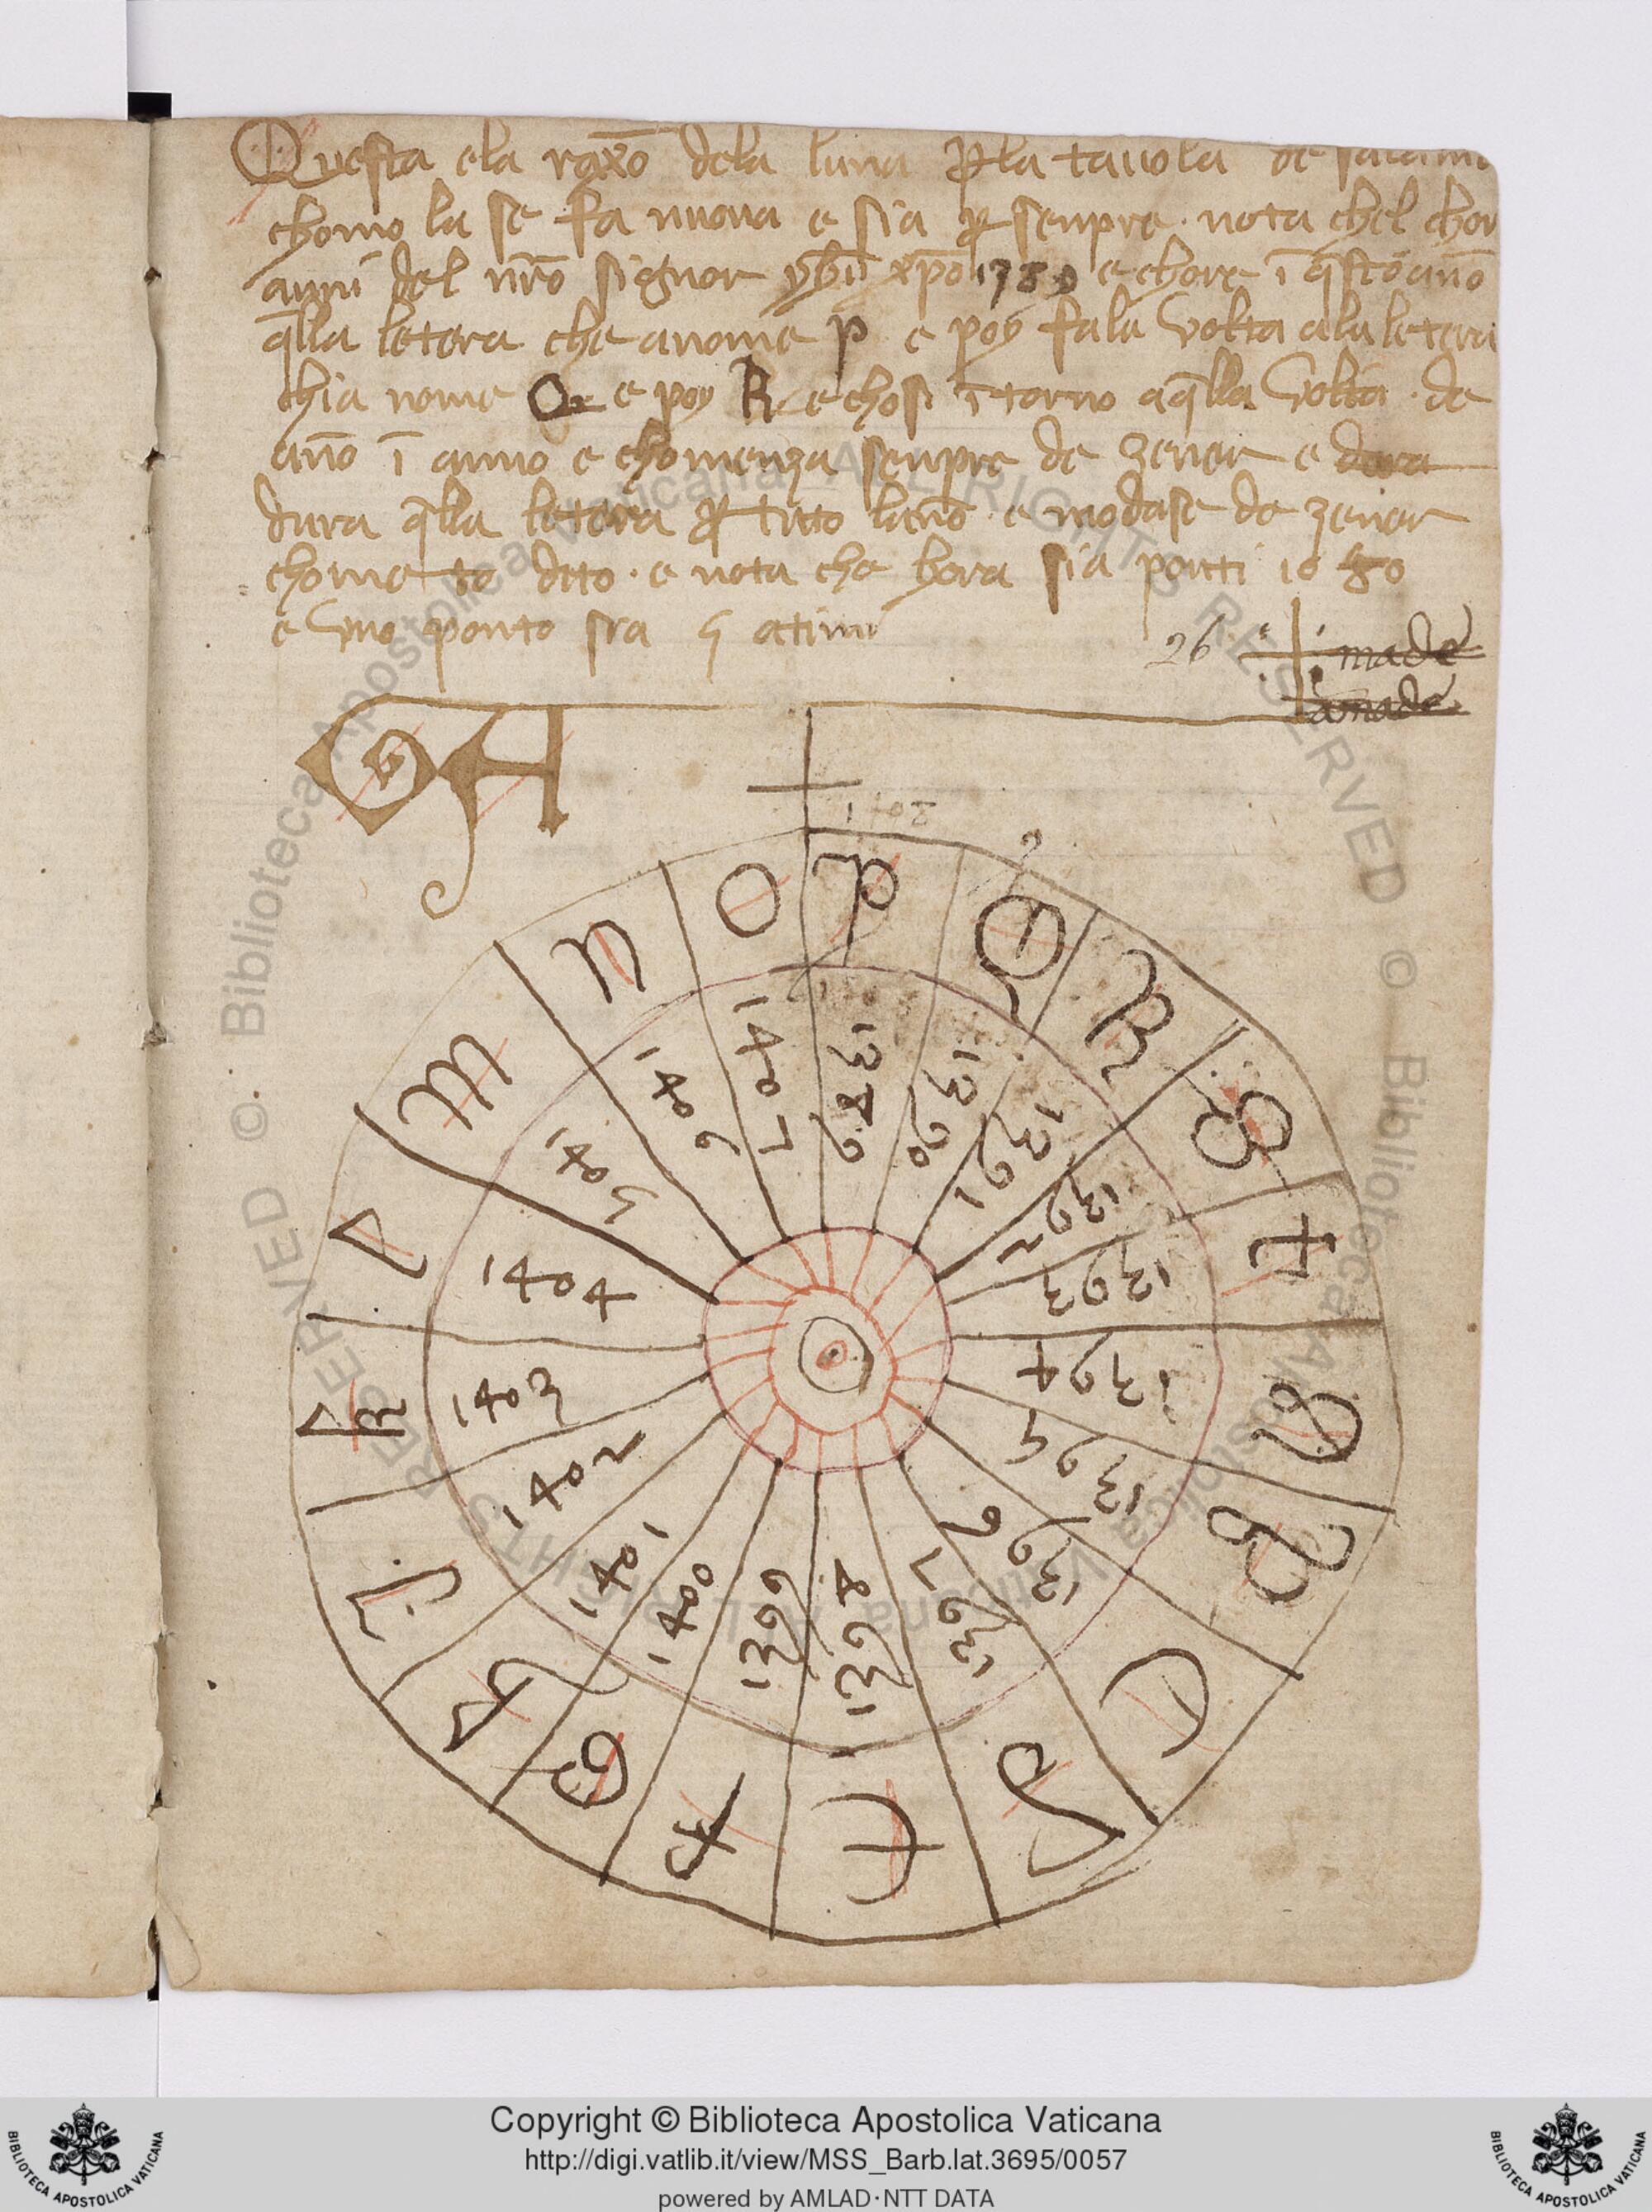 Questa ela raxō dela luna ꝑla tavola de
chomo la se fa nuova e sia ꝑ senpre · nota chel
anni del nr̄o signor yhū xp̄o 1389 e chore ī q̄sto ano
q̄lla letera che anome p e poy fala volta ala letera
chia nome Q e poy R e chosi ītorno aq̄lla volta · de
ano ī anno e chomenza senpre de zener e
dura q̄lla letera ꝑ tuto lano e modase de zener
chome te dito · e nota che hora sia ponti 1080
e uno ponto sra 5 atimi
26
made
amade
A
1408
P
Q
R
S
T
A
B
C
D
E
F
G
H
I
K
L
M
N
O
1389
1390
1391
1392
1393
1394
1395
1396
1397
1398
1399
1400
1401
1402
1403
1404
1405
1406
1407
© Biblioteca Apostolica Vaticana ALL RIGHTS RESERVED
© Biblioteca Apostolica Vaticana ALL RIGHTS RESERVED
Copyright © Biblioteca Apostolica Vaticana
http://digi.vatlib.it/view/MSS_Barb.lat.3695/0057
powered by AMLAD·NTT DATA
BIBLIOTECA APOSTOLICA VATICANA
BIBLIOTECA APOSTOLICA VATICANA